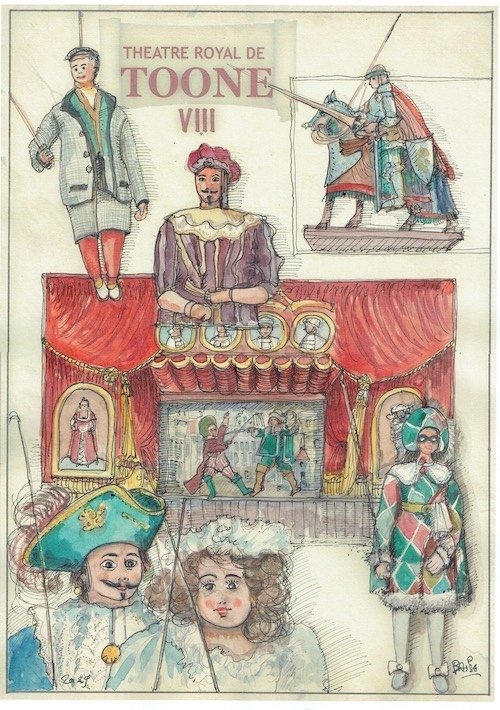 THEATRE ROYAL DE
TOONE
VIII